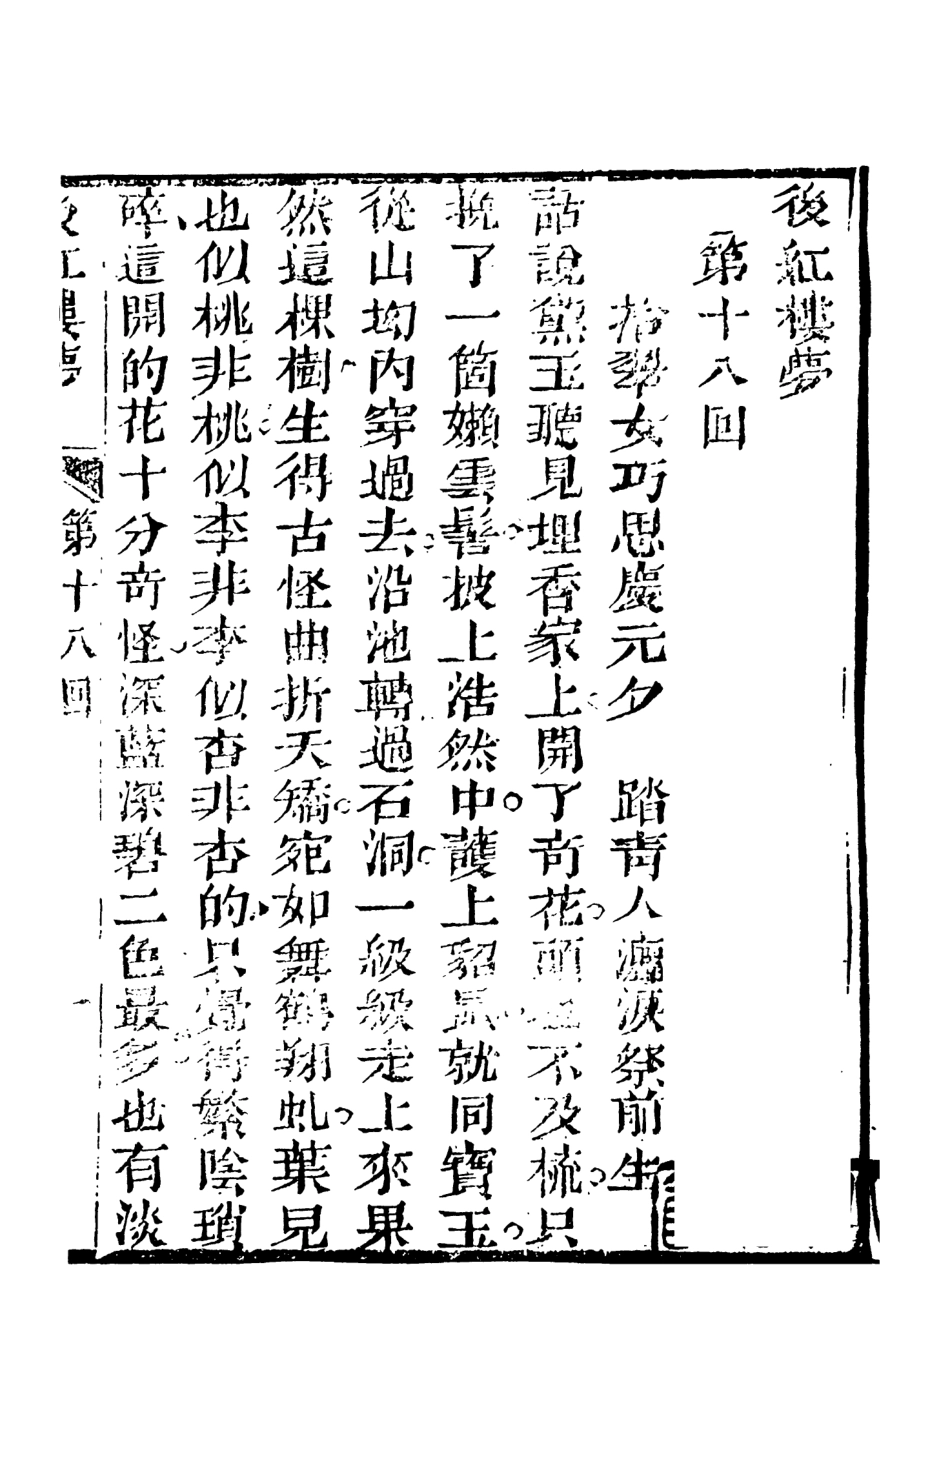 後紅樓夢
第十八回
拾翠女巧思慶元夕　踏青人灑淚祭前生
話說黛玉聽見埋香冢上開了奇花頭也不及梳只
挽了一箇嬾雲髻披上浩然巾護上貂鼠就同寶玉
從山坳內穿過去沿池轉過石洞一級級走上來果
然這棵樹生得古怪曲折天矯宛如舞鶴翔虬葉兒
也似桃非桃似李非李似杏非杏的只覺得繁陰瑣
碎這開的花十分奇怪深藍深碧二色最多也有淡
後紅樓夢　第十八回